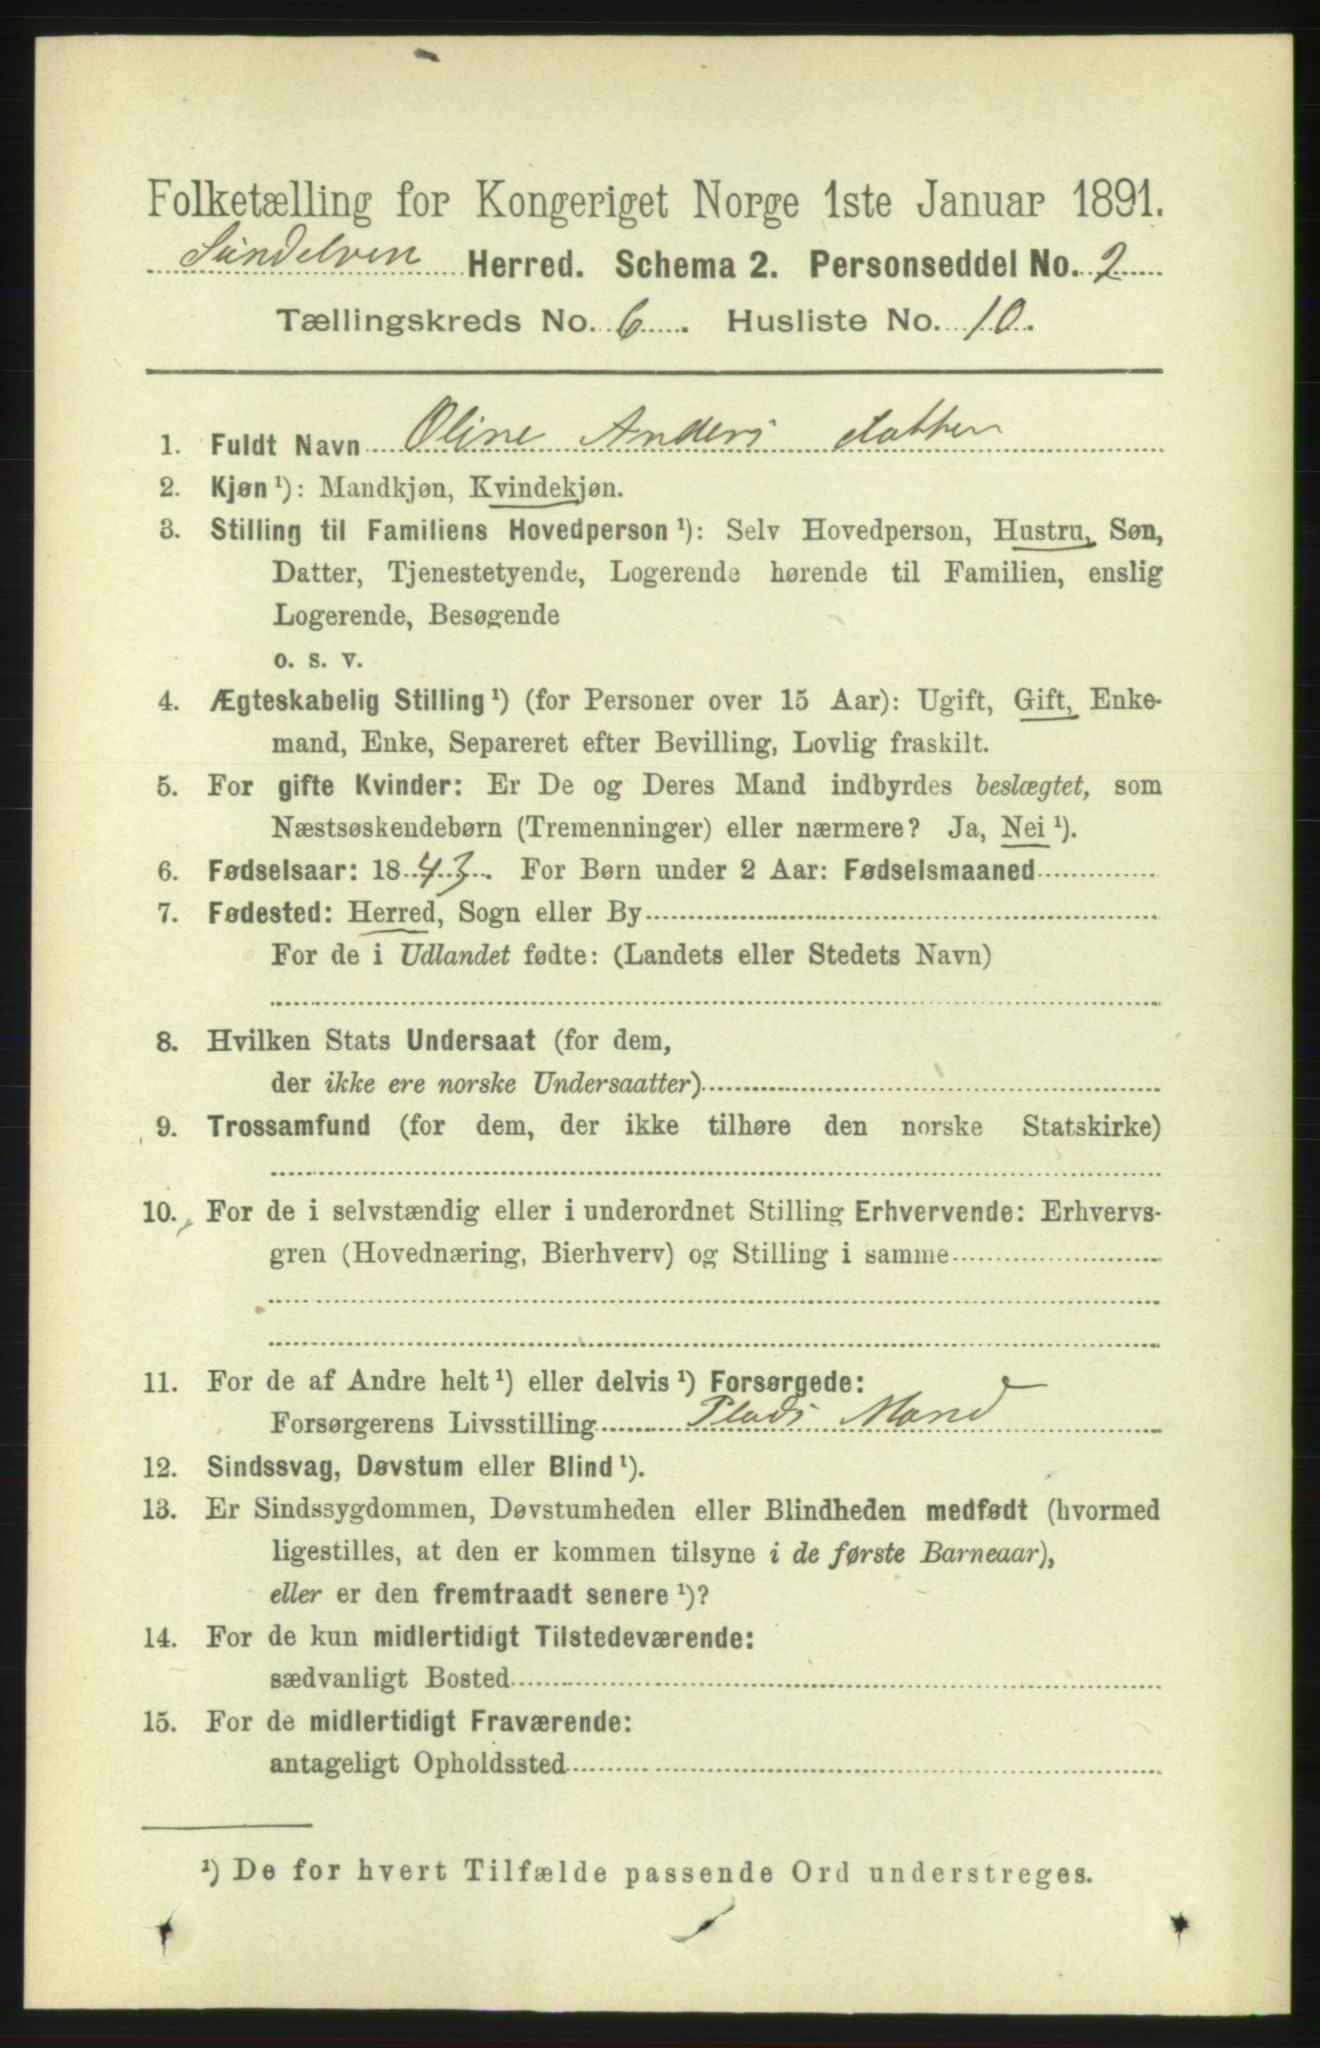 Folketælling for Kongeriget Norge 1ste Januar 1891.
Sundelven Herred. Schema 2. Personseddel No. 2
Tællingskreds No. 6. Husliste No. 10.
1. Fuldt Navn Oline Anders datter
2. Kjøn ¹): Mandkjøn, Kvindekjøn.
3. Stilling til Familiens Hovedperson ¹): Selv Hovedperson, Hustru, Søn,
Datter, Tjenestetyende, Logerende hørende til Familien, enslig
Logerende, Besøgende
o. s. v.
4. Ægteskabelig Stilling ¹) (for Personer over 15 Aar): Ugift, Gift, Enke-
mand, Enke, Separeret efter Bevilling, Lovlig fraskilt.
5. For gifte Kvinder: Er De og Deres Mand indbyrdes beslægtet, som
Næstsøskendebørn (Tremenninger) eller nærmere? Ja, Nei ¹).
6. Fødselsaar: 1843. For Børn under 2 Aar: Fødselsmaaned
7. Fødested: Herred, Sogn eller By
For de i Udlandet fødte: (Landets eller Stedets Navn)
8. Hvilken Stats Undersaat (for dem,
der ikke ere norske Undersaatter)
9. Trossamfund (for dem, der ikke tilhøre den norske Statskirke)
10. For de i selvstændig eller i underordnet Stilling Erhvervende: Erhvervs-
gren (Hovednæring, Bierhverv) og Stilling i samme
11. For de af Andre helt ¹) eller delvis ¹) Forsørgede:
Forsørgerens Livsstilling Plads Mand
12. Sindssvag, Døvstum eller Blind ¹).
13. Er Sindssygdommen, Døvstumheden eller Blindheden medfødt (hvormed
ligestilles, at den er kommen tilsyne i de første Barneaar),
eller er den fremtraadt senere ¹)?
14. For de kun midlertidigt Tilstedeværende:
sædvanligt Bosted
15. For de midlertidigt Fraværende:
antageligt Opholdssted
¹) De for hvert Tilfælde passende Ord understreges.